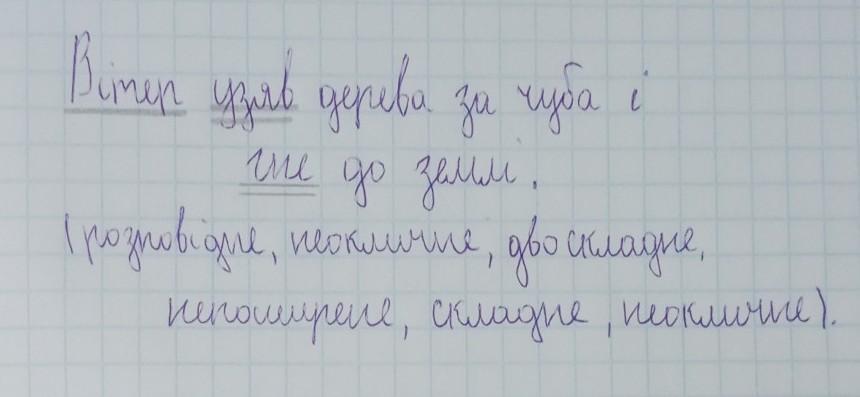 Вітер узяв дерева за чуба і
гне до землі.
(розповідне, неокличне, двоскладне,
непоширене, складне, неокличне).